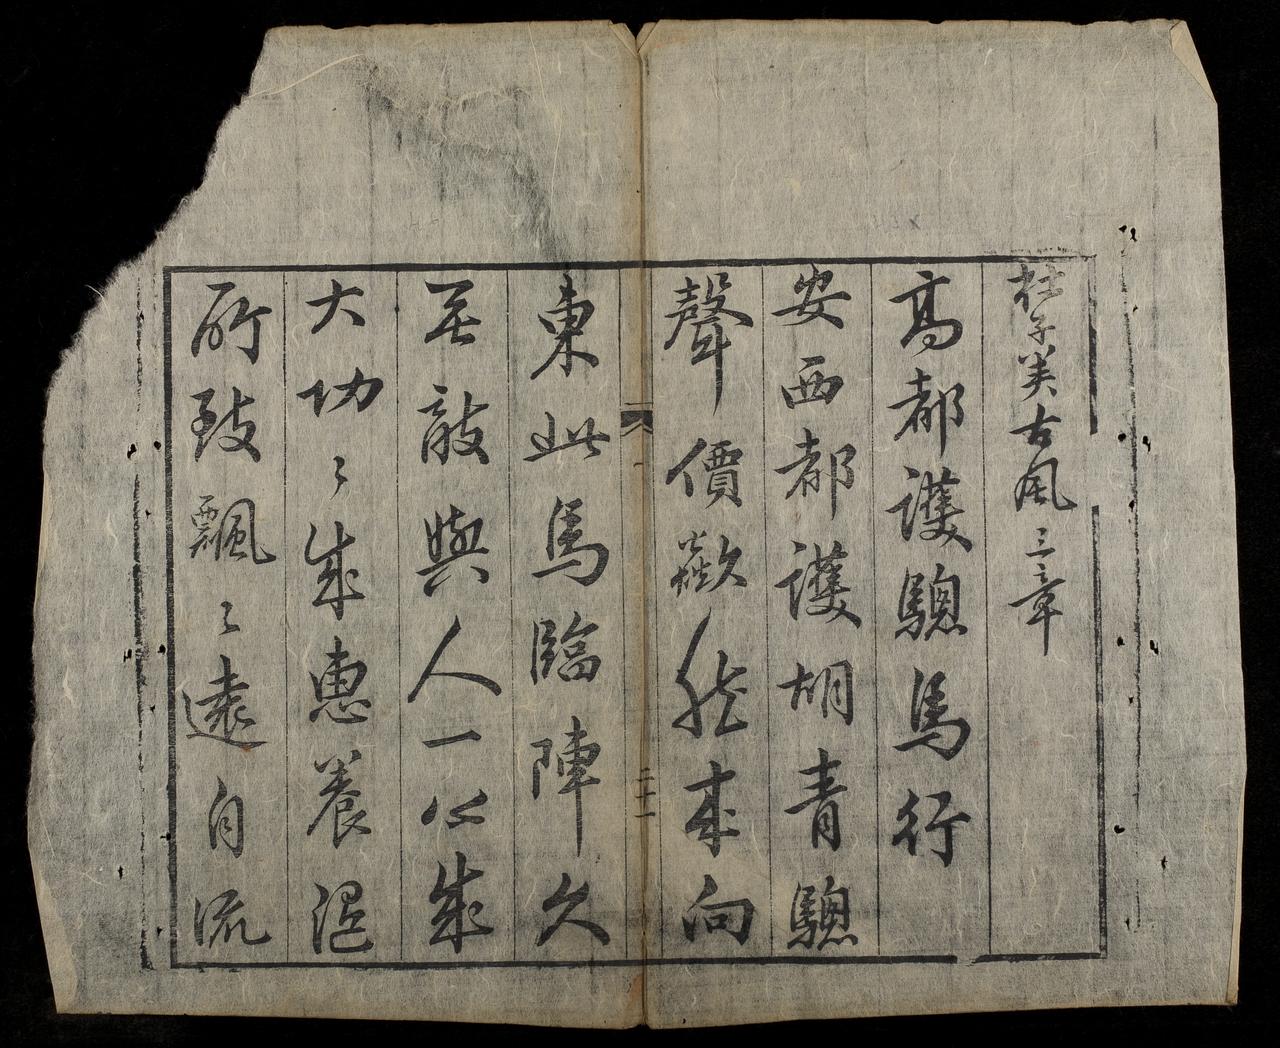 杜子美古風三章
高都護驄馬行
安西都護胡青驄
聲價歘然来向
東此馬臨陣久
無敵與人一心成
大功〻成惠養隨
所致飄〻遠自流
二十一